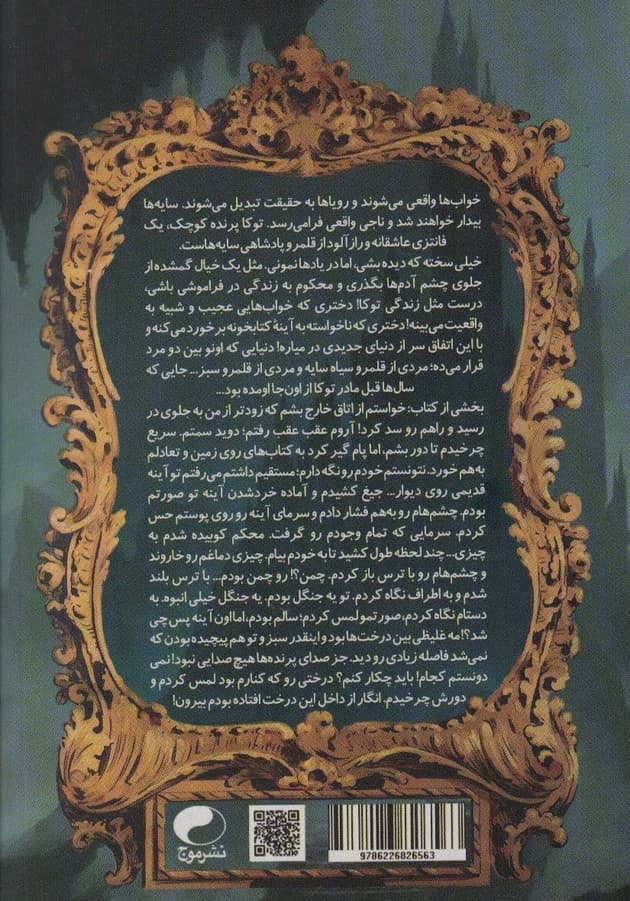 خواب‌ها واقعی می‌شوند و رویاها به حقیقت تبدیل می‌شوند. سایه‌ها
بیدار خواهند شد و ناجی واقعی فرامی‌رسد. توکا پرنده کوچک، یک
فانتزی عاشقانه و رازآلود از قلمرو پادشاهی سایه‌هاست.
خیلی سخته که دیده بشی، اما در یادها نمونی. مثل یک خیال گمشده از
جلوی چشم آدم‌ها بگذری و محکوم به زندگی در فراموشی باشی،
درست مثل زندگی توکا! دختری که خواب‌هایی عجیب و شبیه به
واقعیت می‌بینه! دختری که ناخواسته به آینۀ کتابخونه برخورد می‌کنه و
با این اتفاق سر از دنیای جدیدی در میاره! دنیایی که اونو بین دو مرد
قرار می‌ده؛ مردی از قلمرو سیاه سایه و مردی از قلمرو سبز... جایی که
سال‌ها قبل مادر توکا از اون‌جا اومده بود...
بخشی از کتاب: خواستم از اتاق خارج بشم که زودتر از من به جلوی در
رسید و راهم رو سد کرد! آروم عقب عقب رفتم؛ دوید سمتم. سریع
چرخیدم تا دور بشم، اما پام گیر کرد به کتاب‌های روی زمین و تعادلم
به‌هم خورد. نتونستم خودم رو نگه دارم؛ مستقیم داشتم می‌رفتم تو آینه
قدیمی روی دیوار... جیغ کشیدم و آماده خردشدن آینه تو صورتم
بودم. چشم‌هام رو به‌هم فشار دادم و سرمای آینه رو روی پوستم حس
کردم. سرمایی که تمام وجودم رو گرفت. محکم کوبیده شدم به
چیزی... چند لحظه طول کشید تا به خودم بیام. چیزی دماغم رو خاروند
و چشم‌هام رو با ترس باز کردم. چمن؟! رو چمن بودم... با ترس بلند
شدم و به اطراف نگاه کردم. تو یه جنگل بودم. یه جنگل خیلی انبوه. به
دستام نگاه کردم، صورتمو لمس کردم؛ سالم بودم، اما اون آینه پس چی
شد؟! مه غلیظی بین درخت‌ها بود و اینقدر سبز و تو هم پیچیده بودن که
نمی‌شد فاصله زیادی رو دید. جز صدای پرنده‌ها هیچ صدایی نبود! نمی
دونستم کجام! باید چکار کنم؟ درختی رو که کنارم بود لمس کردم و
دورش چرخیدم. انگار از داخل این درخت افتاده بودم بیرون!
نشر موج
9786226826563